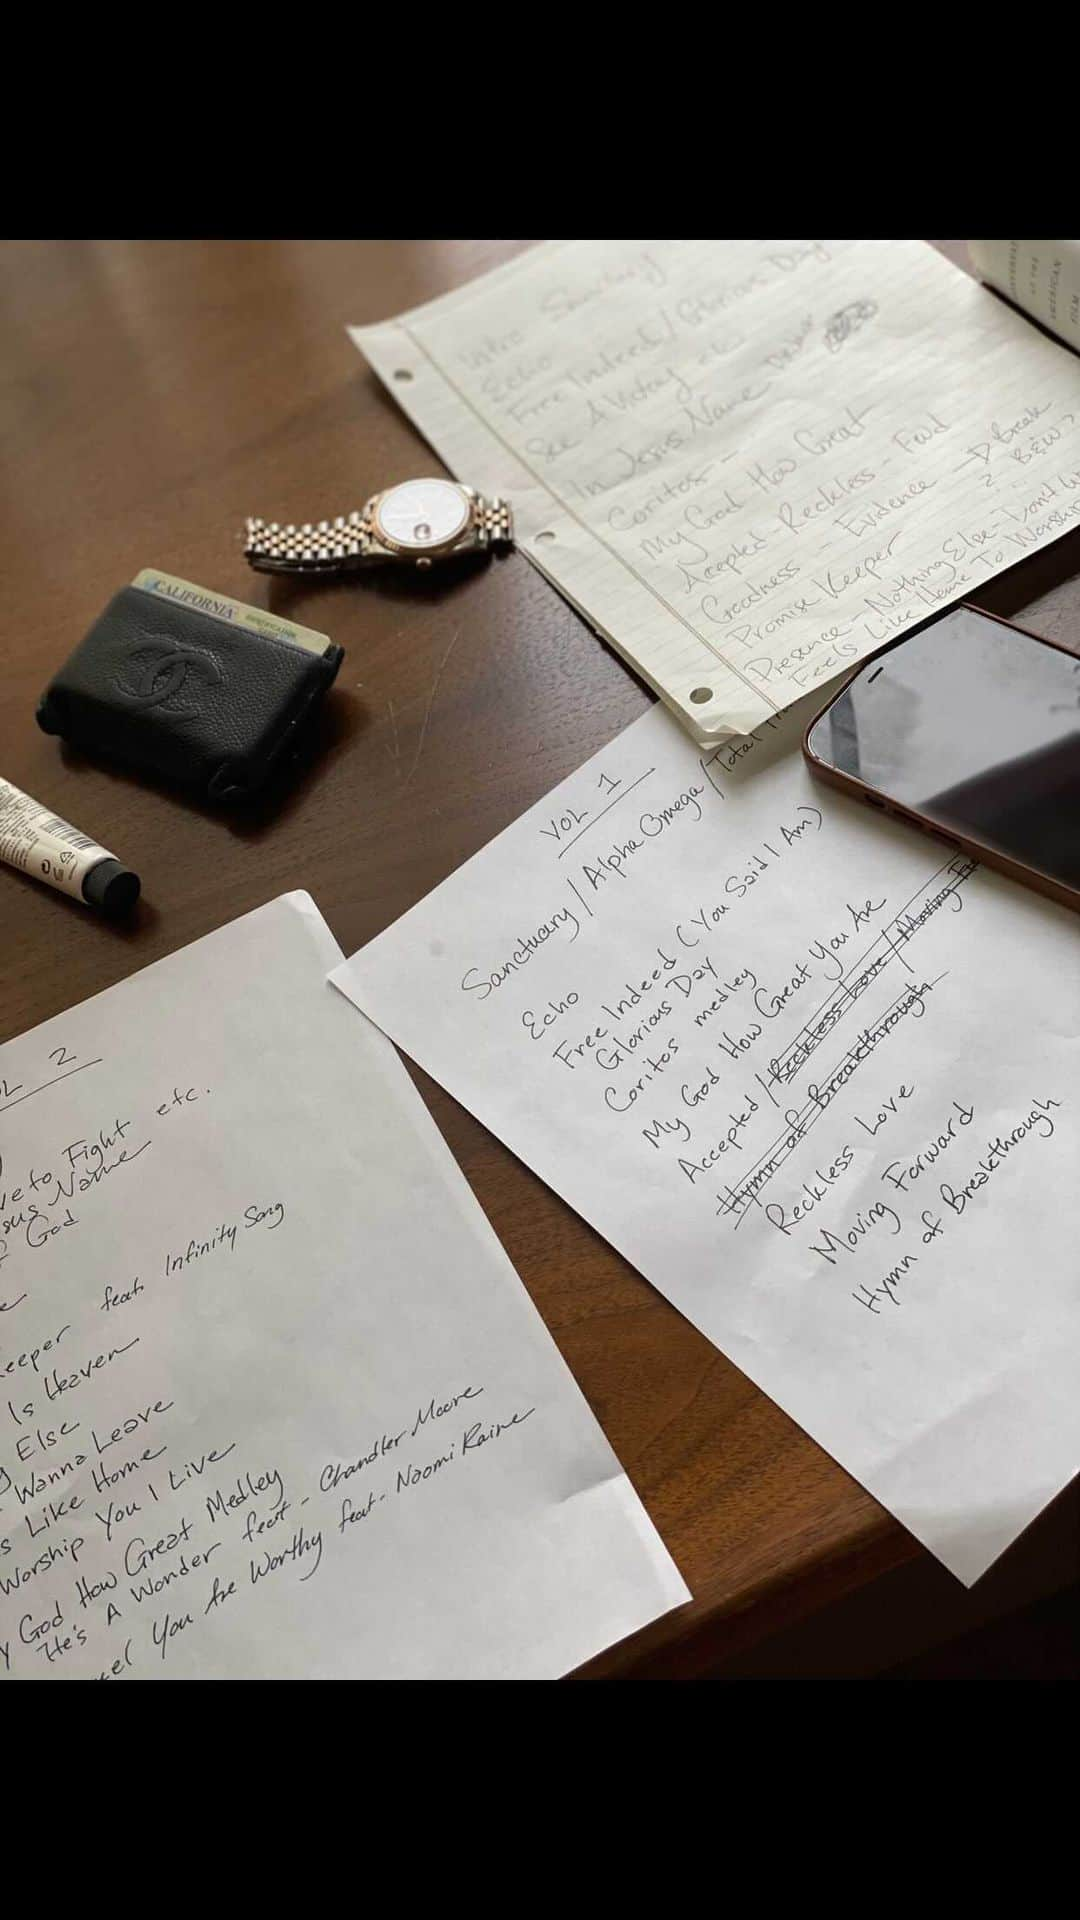 Intro Sanctuary
Echo
Free Indeed / Glorious Day
See A Victory - etc
In Jesus Name
Coritos -
My God How Great
Accepted Reckless - Fwd
Goodness - Evidence → Break
Promise Keeper ? B&W?
Presence - Nothing Else - Don't
Feels Like Home To Worship
AMERICAN
FILM
CALIFORNIA
VOL 1
Sanctuary / Alpha Omega / Total
Echo
Free Indeed (You Said I Am)
Glorious Day
Coritos medley
My God How Great You Are
Accepted / Reckless Love / Moving
Hymn of Breakthrough
Reckless Love
Moving Forward
Hymn of Breakthrough
2
ve to Fight etc.
sus Name
God
eeper feat. Infinity Song
Is Heaven
g Else
Wanna Leave
s Like Home
Worship You I Live
y God How Great Medley
He's A Wonder feat - Chandler Moore
You Are Worthy feat - Naomi Raine